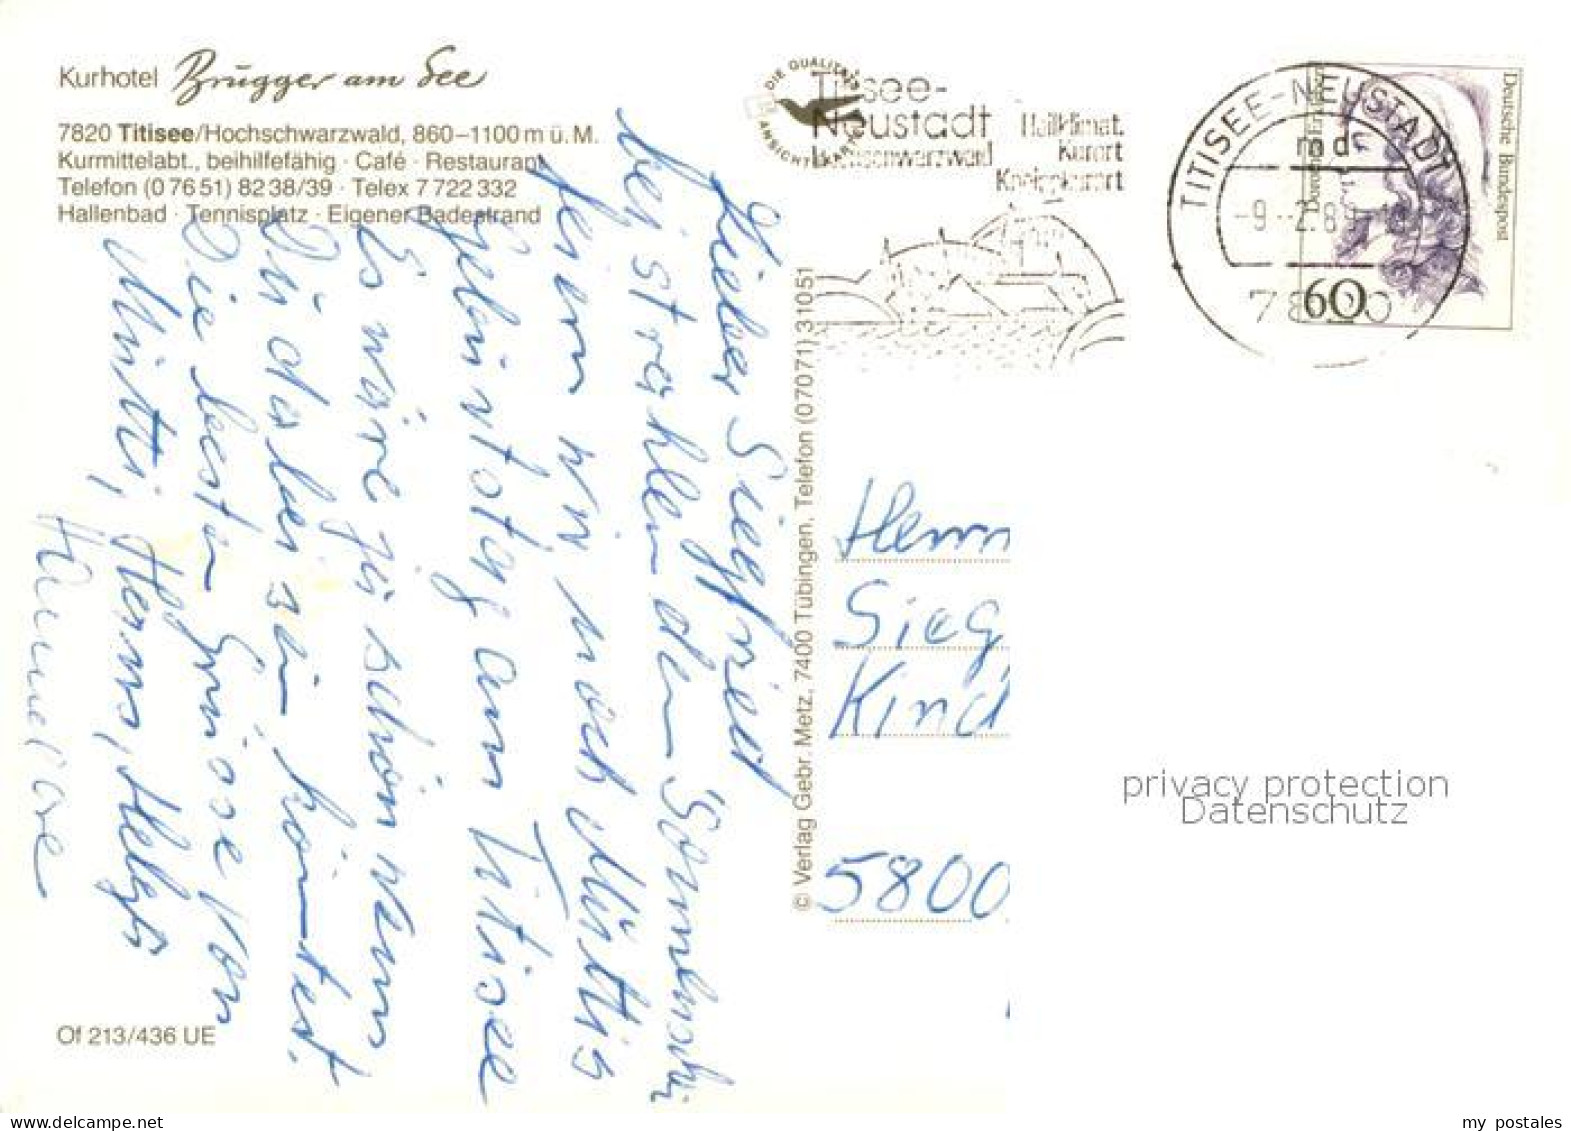 Kurhotel Brugger am See
7820 Titisee/Hochschwarzwald, 860–1100 m ü. M.
Kurmittelabt., beihilfefähig · Café · Restaurant
Telefon (0 76 51) 82 38/39 · Telex 7 722 332
Hallenbad · Tennisplatz · Eigener Badestrand
Lieber Siegfried
bei strahlendem Sonnenschein
feiern wir noch Muttis
Geburtstag am Titisee
Es wäre ja schön wenn
Du dabei sein könntest.
Die besten Grüsse von
Mutti, Hans, Helga
Hannelore
Of 213/436 UE
© Verlag Gebr. Metz, 7400 Tübingen, Telefon (07071) 31051
DIE QUALITÄTS
ANSICHTSKARTE
Titisee-
Neustadt
Hochschwarzwald
Heilklimat.
Kurort
Kneippkurort
TITISEE-NEUSTADT
md
-9.-2.89
7820
Deutsche Bundespost
60
Herrn
Sieg
Kind
5800
privacy protection
Datenschutz
my postales
www.delcampe.net